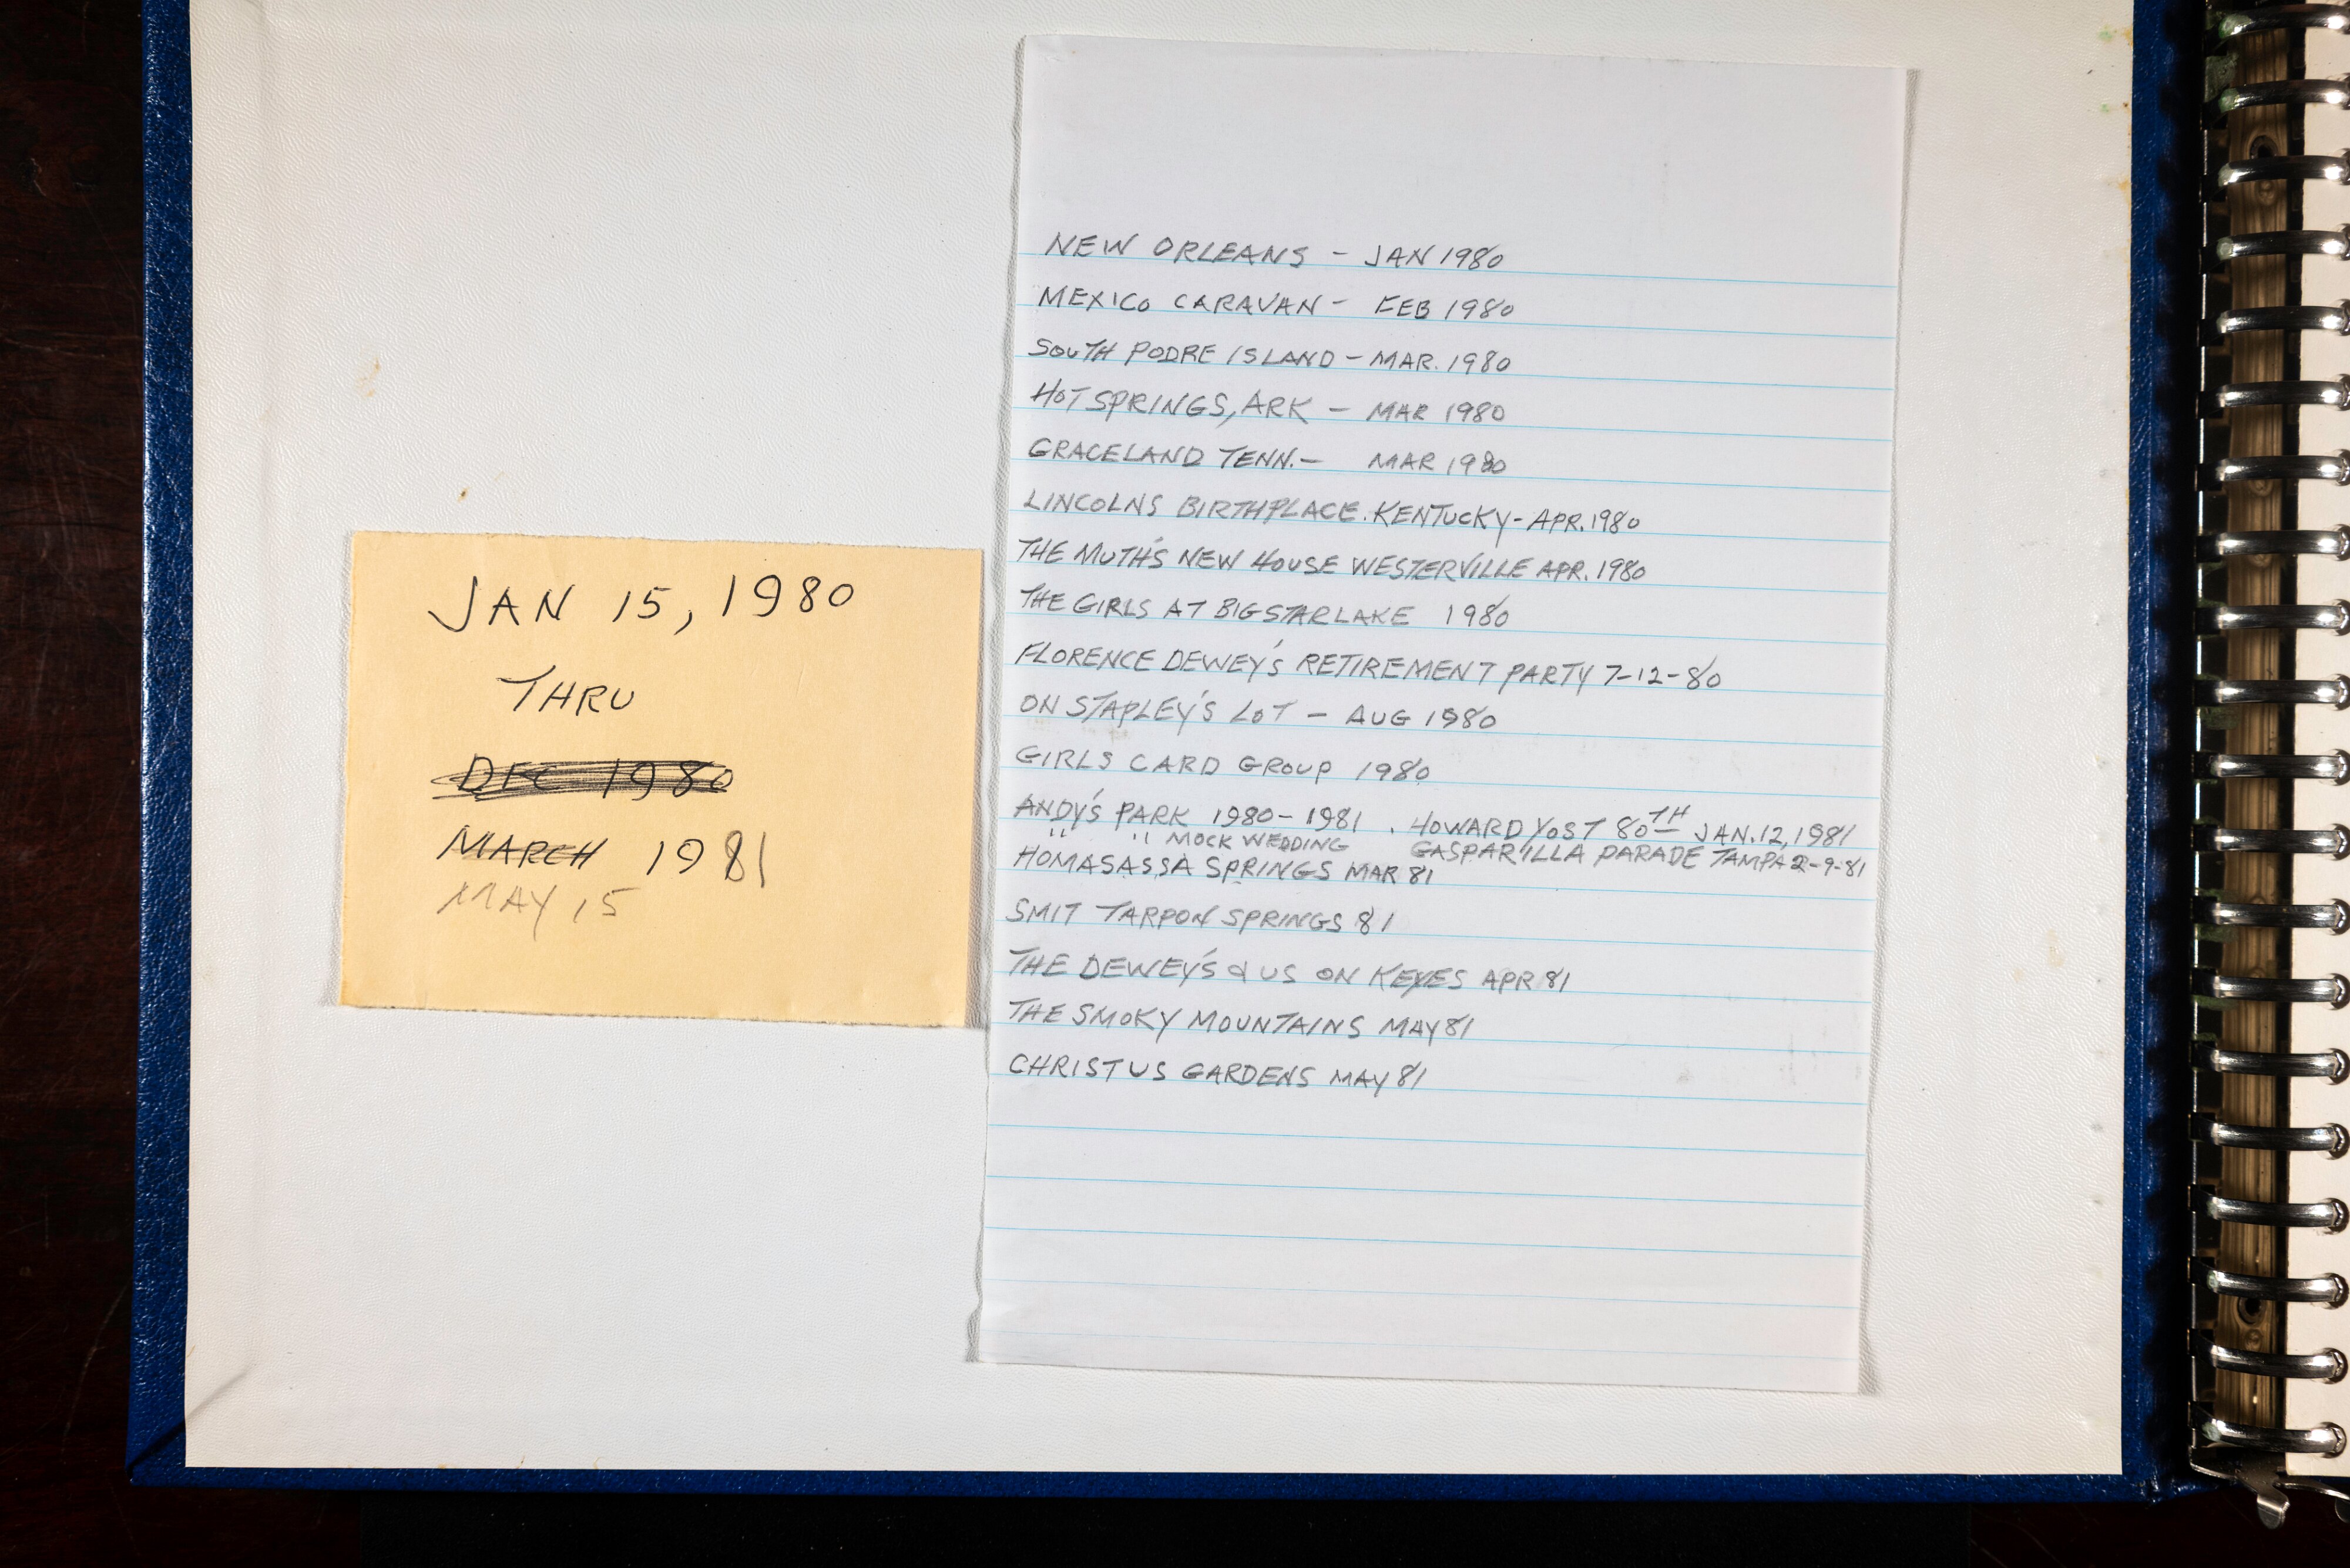 JAN 15, 1980
THRU
DEC 1980
MARCH 1981
MAY 15
NEW ORLEANS - JAN 1980
MEXICO CARAVAN - FEB 1980
SOUTH PODRE ISLAND - MAR. 1980
HOT SPRINGS, ARK - MAR 1980
GRACELAND TENN. - MAR 1980
LINCOLNS BIRTHPLACE. KENTUCKY - APR. 1980
THE MUTH'S NEW HOUSE WESTERVILLE APR. 1980
THE GIRLS AT BIG STAR LAKE 1980
FLORENCE DEWEY'S RETIREMENT PARTY 7-12-80
ON STAPLEY'S LOT - AUG 1980
GIRLS CARD GROUP 1980
ANDY'S PARK 1980 - 1981 . HOWARD YOST 80TH JAN. 12, 1981
" " MOCK WEDDING GASPARILLA PARADE TAMPA 2-9-81
HOMASASSA SPRINGS MAR 81
SMIT TARPON SPRINGS 81
THE DEWEY'S & US ON KEYES APR 81
THE SMOKY MOUNTAINS MAY 81
CHRISTUS GARDENS MAY 81